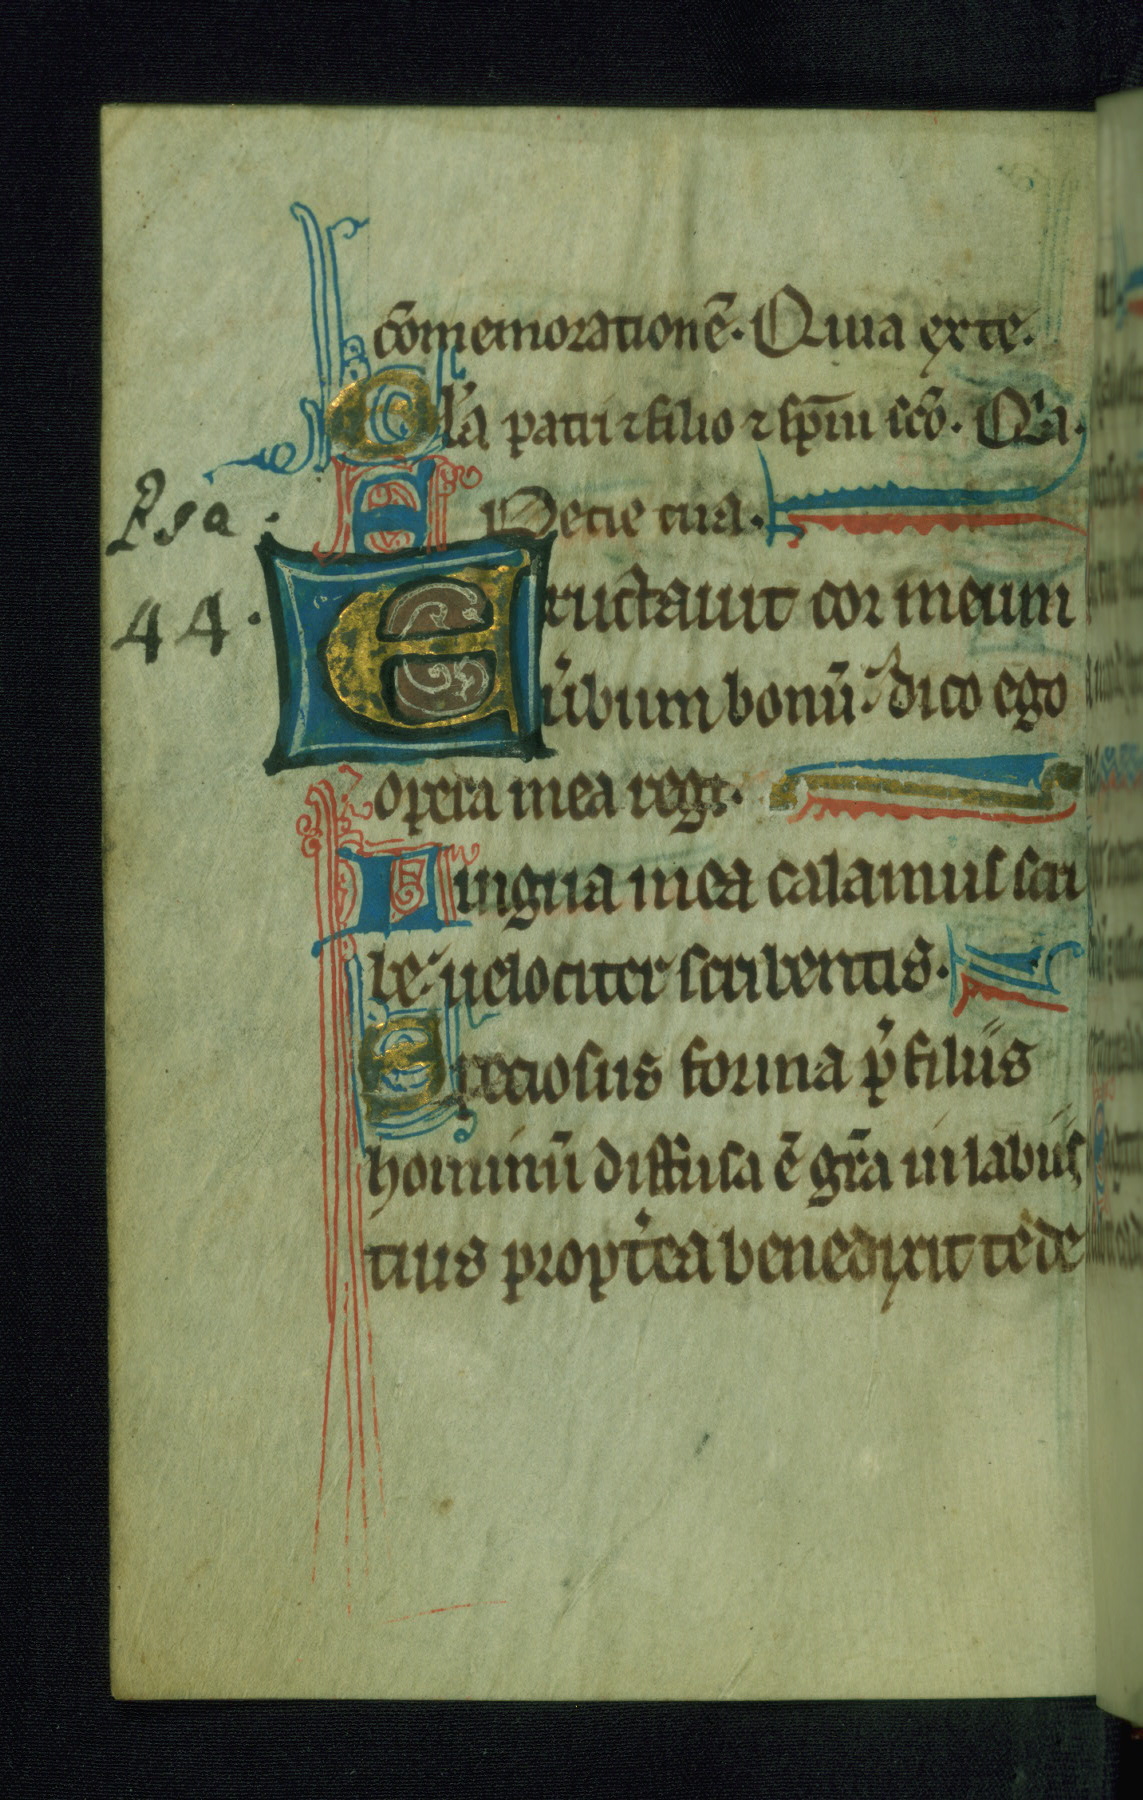 cōmemorationē. Quia ex te.
Gľa patri ⁊ filio ⁊ sp̄iu sc̄o. Q̄a.
Specie tua.
Psa. Eructauit cor meum
44. u̾bum bonū dico ego
opera mea regi.
Lingua mea calamus scri
be uelociter scribentis.
Speciosus forma p̄ filiis
hominū diffusa ē gr̄a in labiis
tuis propt̾ea benedixit te de